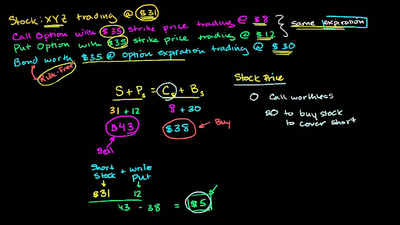 Stock: XYZ trading @ $31
Call Option with $35 strike price trading @ $8
Put Option with $35 strike price trading @ $12
same expiration
Bond worth $35 @ option expration trading @ $30
Risk-Free
Stock Price
S + P = C + B
31 + 12 8 + 30
$43 $38 Buy
Sell
0 Call worthless
$0 to buy stock
to cover short
Short Stock + write Put
$31 12
43 - 38 = $5